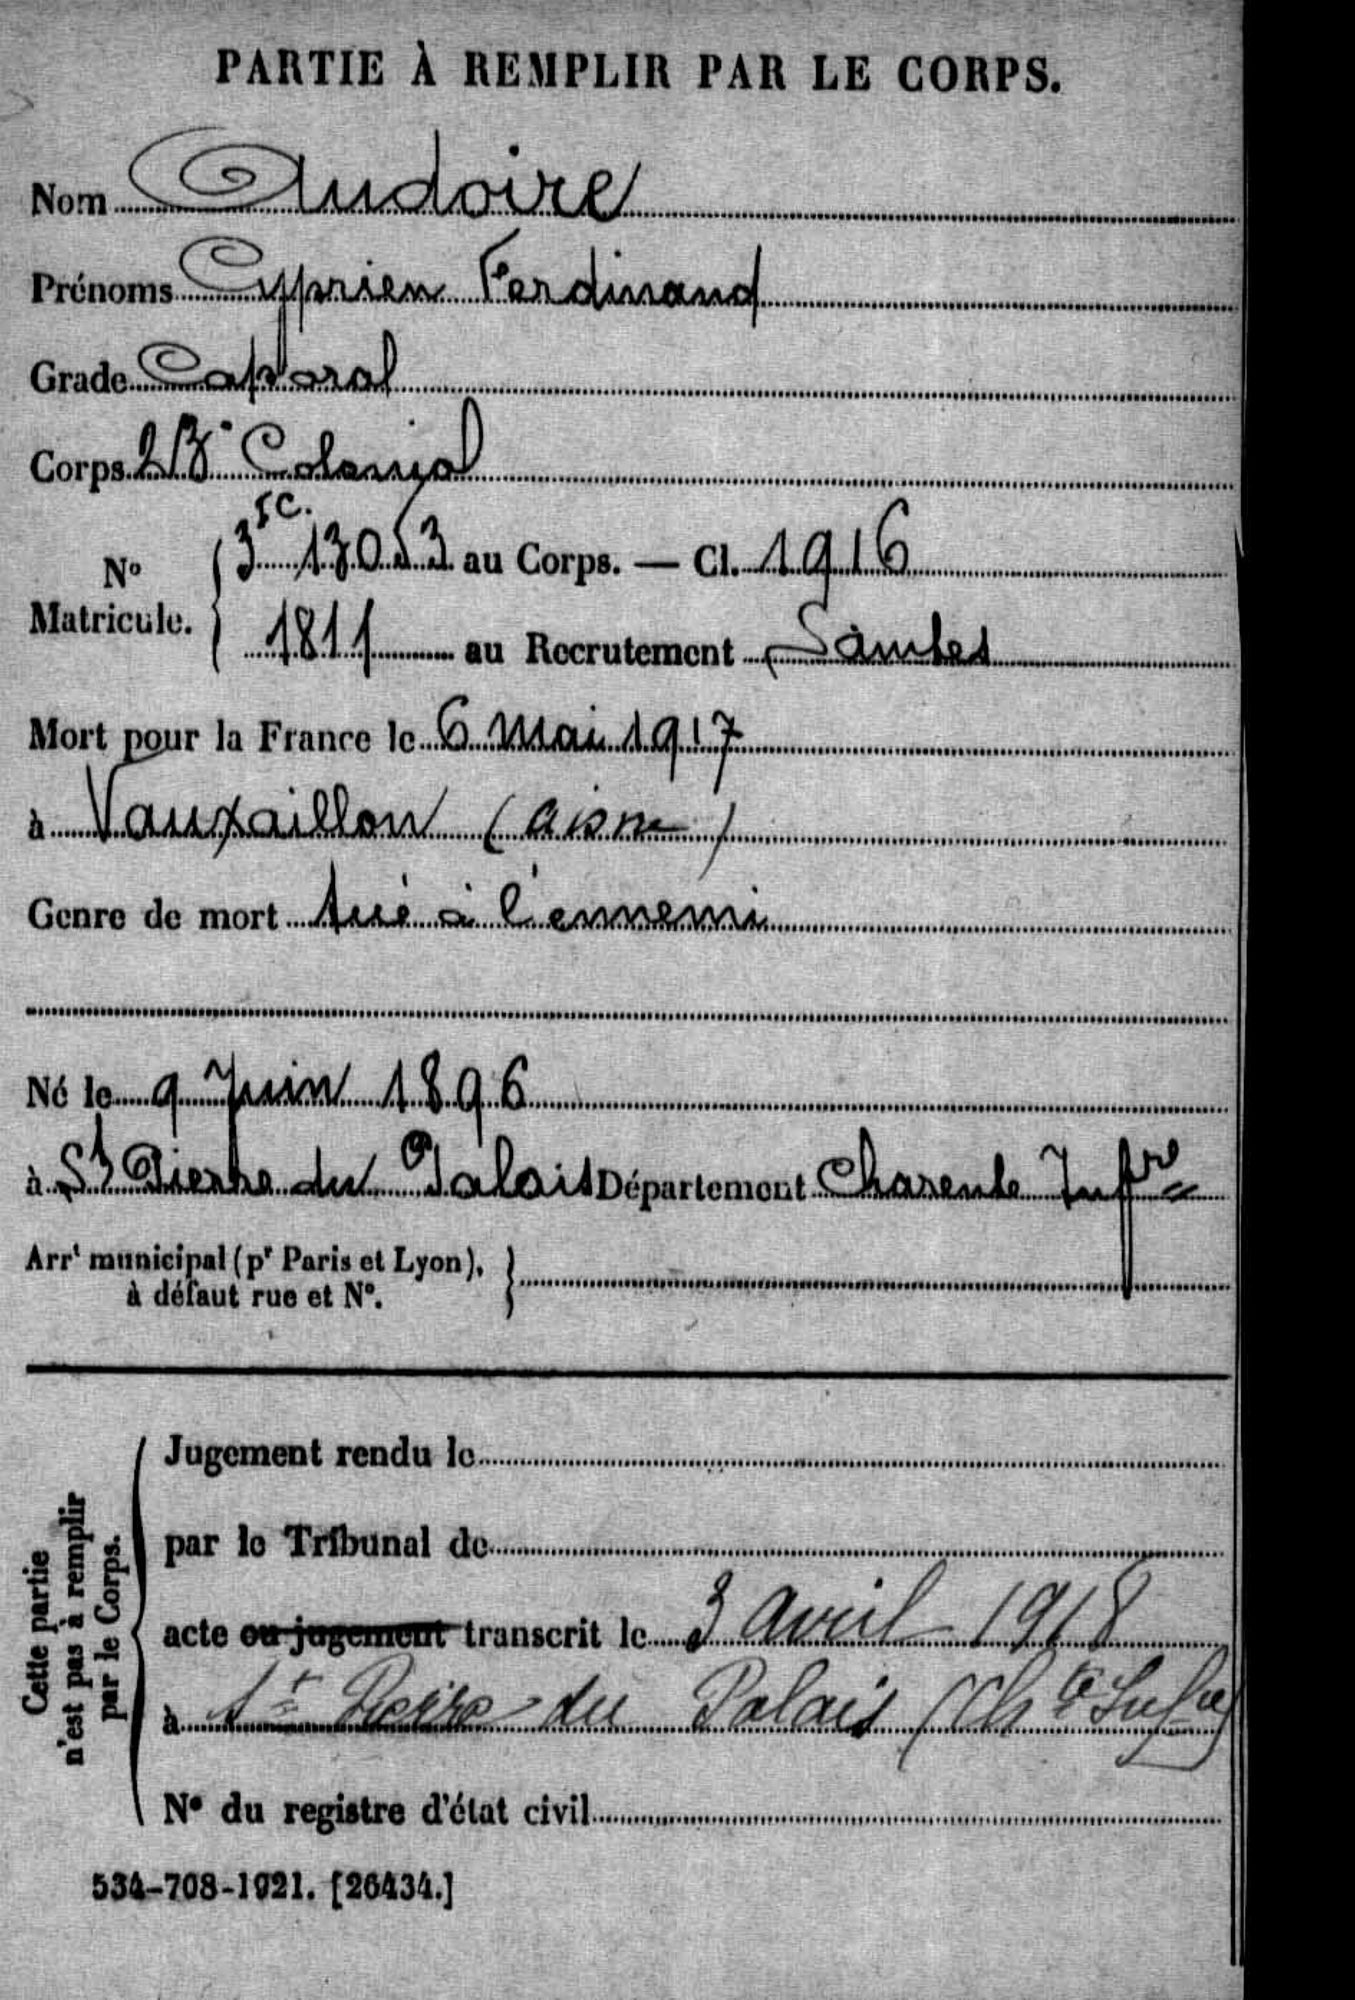 PARTIE À REMPLIR PAR LE CORPS.
Nom Audoire
Prénoms Cyprien Ferdinand
Grade Caporal
Corps 23e Colonial
No Matricule. 3 13053 au Corps. — Cl. 1916
1811 au Recrutement Saintes
Mort pour la France le 6 Mai 1917
à Vauxaillon (Aisne)
Genre de mort tué à l'ennemi
Né le 9 Juin 1896
à St Pierre du Palais Département Charente Infre
Arrt municipal (pr Paris et Lyon),
à défaut rue et No.
Cette partie
n'est pas à remplir
par le Corps.
Jugement rendu le
par le Tribunal de
acte ou jugement transcrit le 3 avril 1918
à St Pierre du Palais (Chte Infre)
No du registre d'état civil
534-708-1921. [26434.]